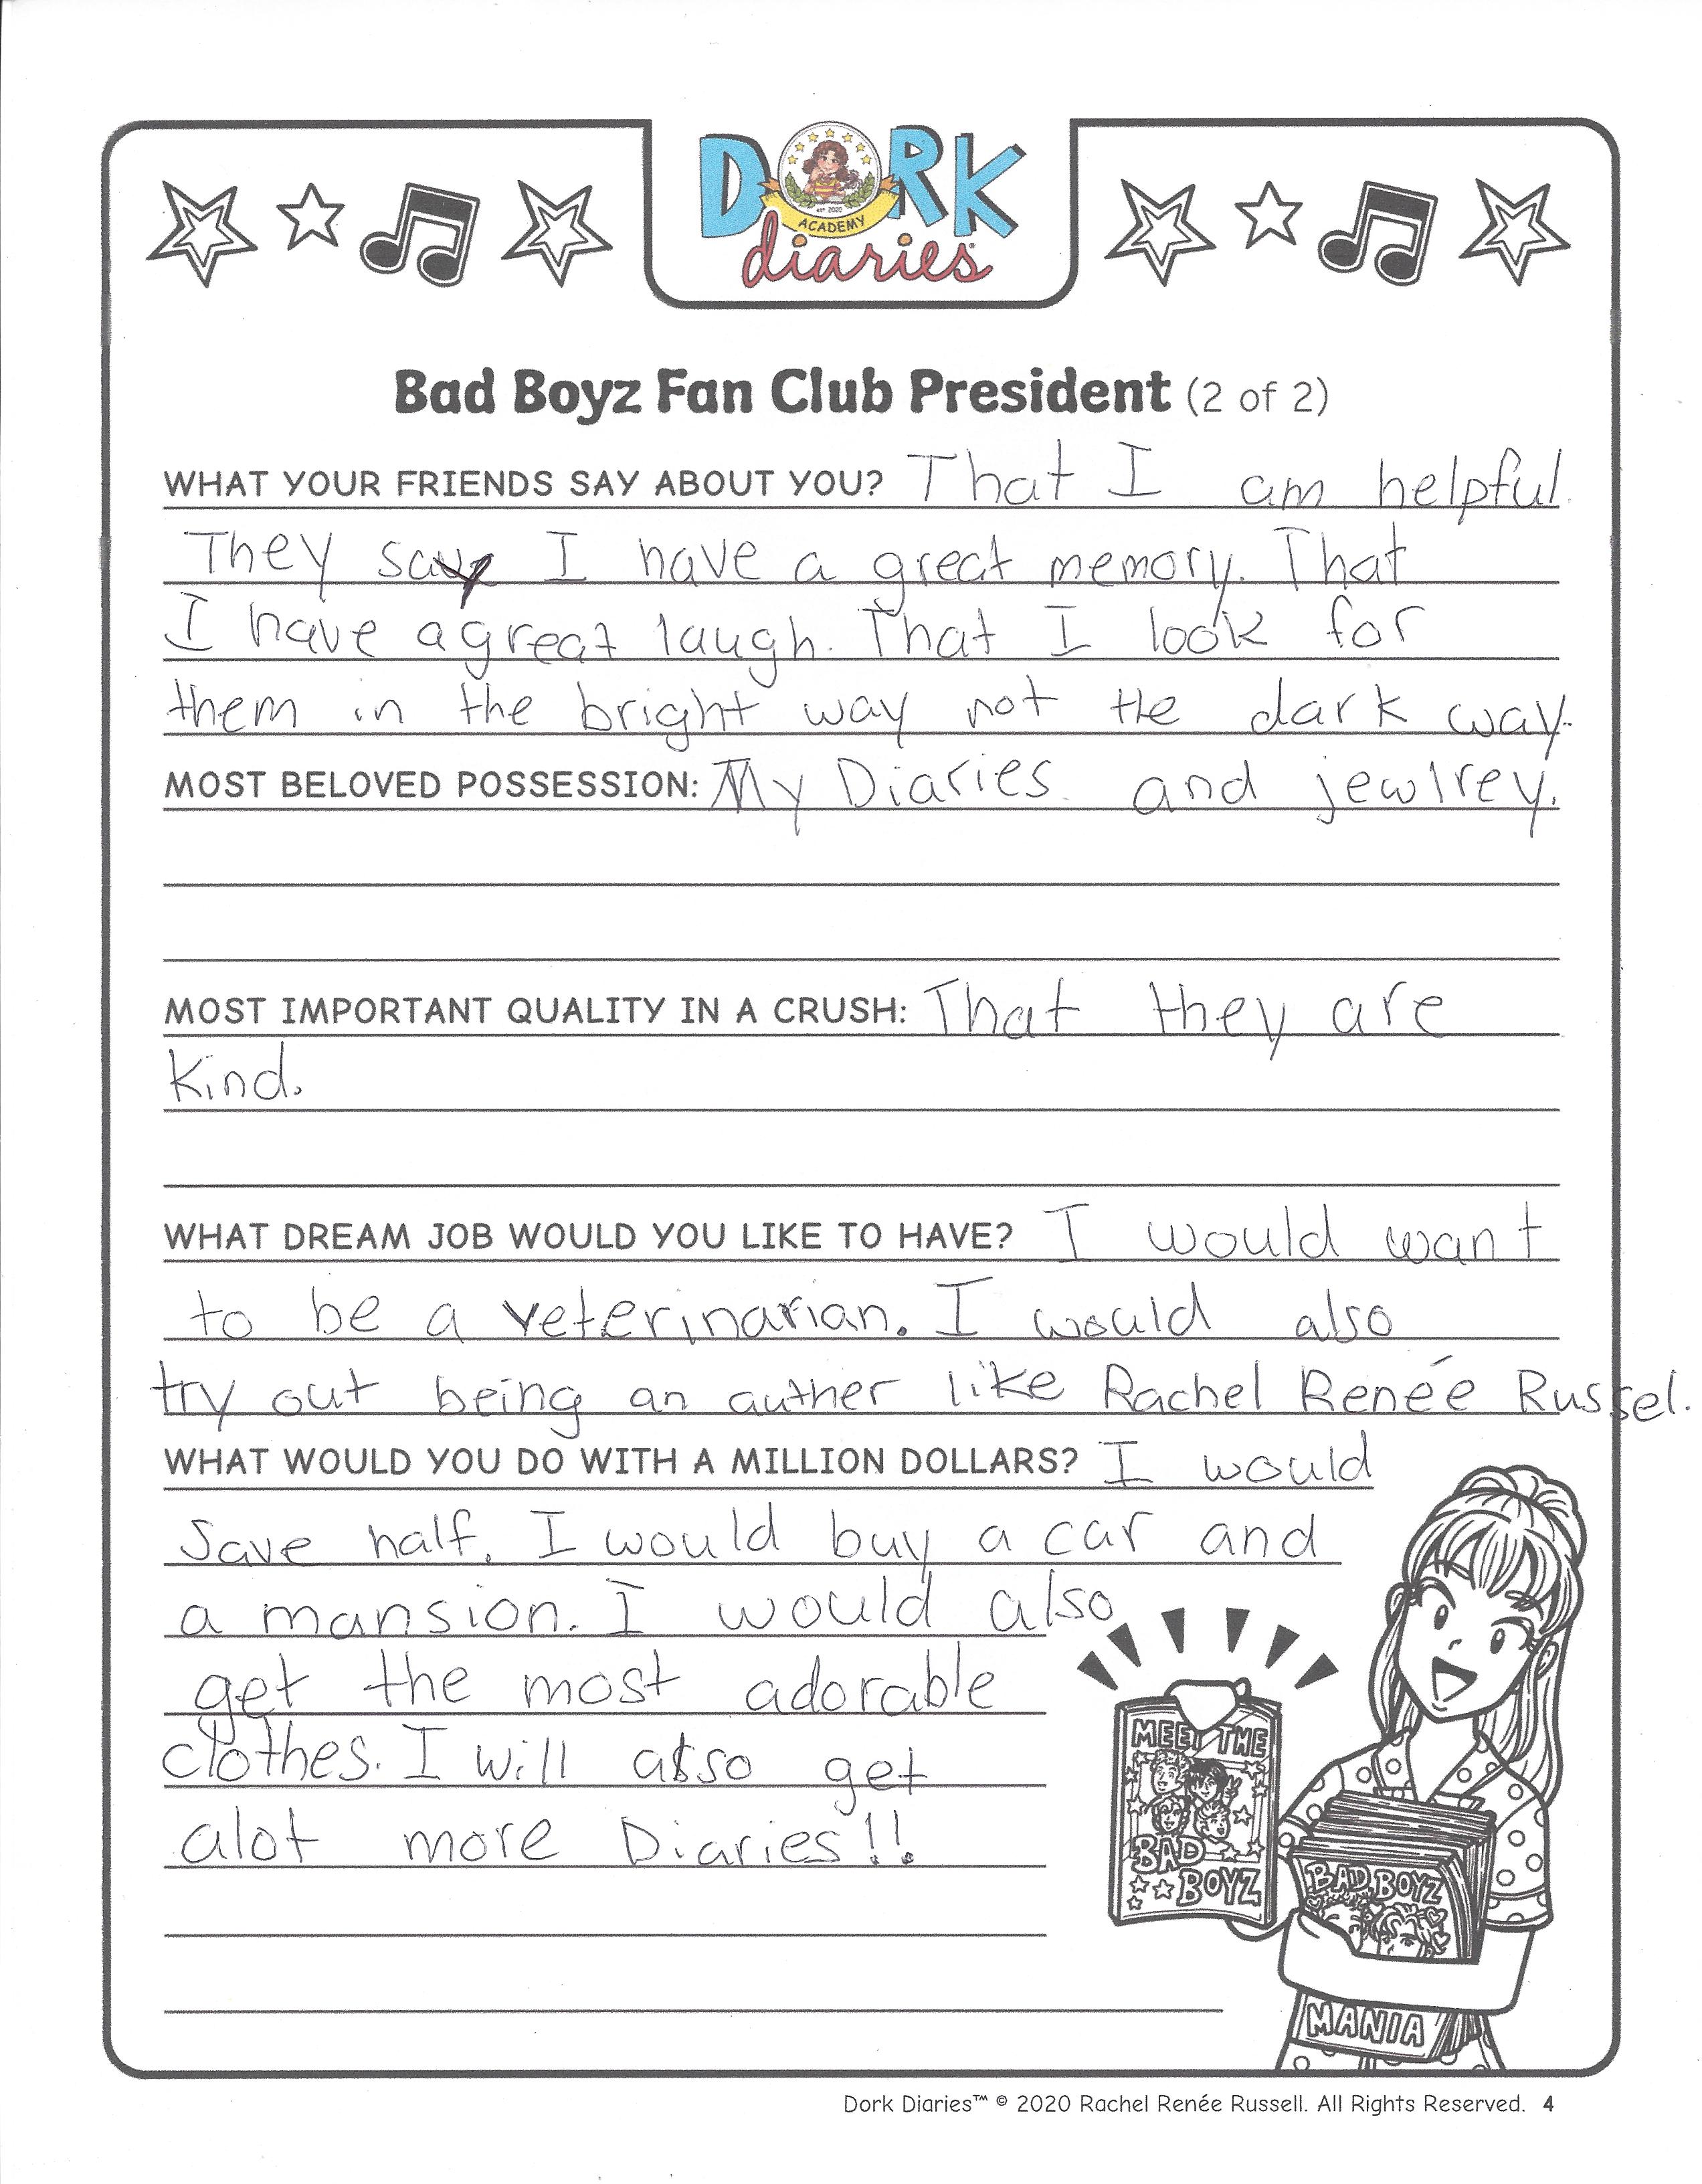 DORK
est 2020
ACADEMY
diaries
Bad Boyz Fan Club President (2 of 2)
WHAT YOUR FRIENDS SAY ABOUT YOU? That I am helpful.
They say I have a great memory. That
I have a great laugh. That I look for
them in the bright way not the dark way.
MOST BELOVED POSSESSION: My Diaries and jewlrey.
MOST IMPORTANT QUALITY IN A CRUSH: That they are
kind.
WHAT DREAM JOB WOULD YOU LIKE TO HAVE? I would want
to be a veterinarian. I would also
try out being an auther like Rachel Renée Russel.
WHAT WOULD YOU DO WITH A MILLION DOLLARS? I would
save half. I would buy a car and
a mansion. I would also
get the most adorable
clothes. I will also get
alot more Diaries!!
MEET THE
BAD
BOYZ
BAD BOYZ
MANIA
Dork Diaries™ © 2020 Rachel Renée Russell. All Rights Reserved. 4